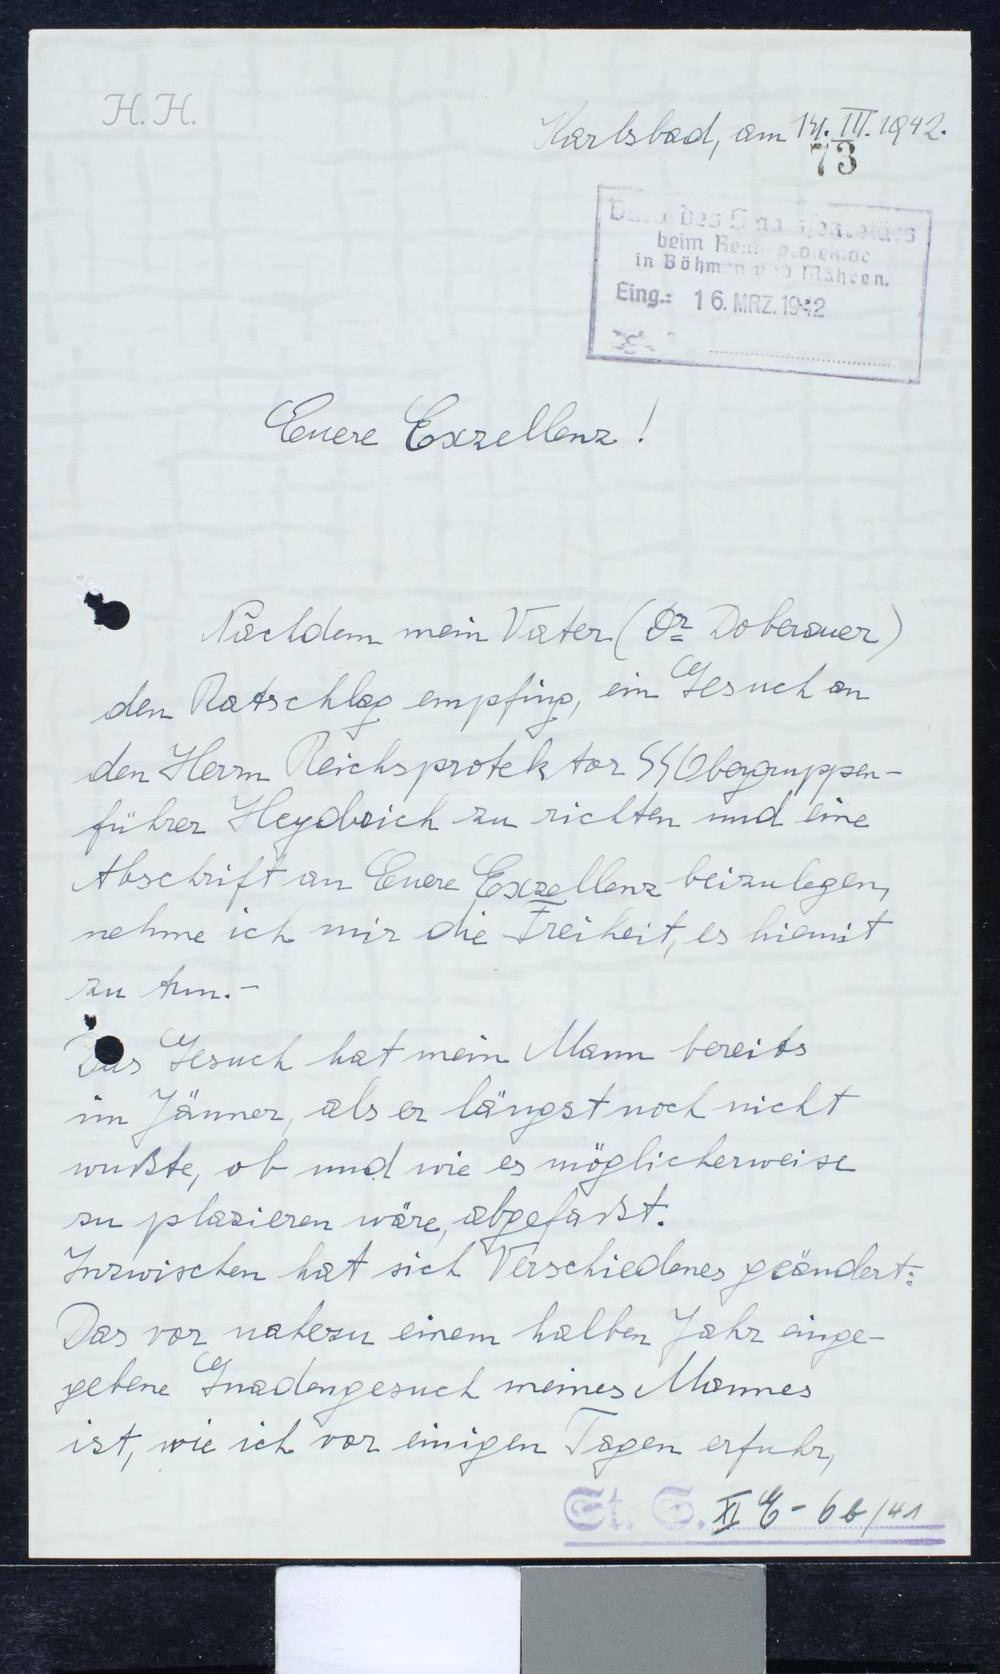 H. H.
Karlsbad, am 14. III. 1942.
73
Büro des Staatssekretärs
beim Reichsprotektor
in Böhmen und Mähren.
Eing.: 16. MRZ. 1942
Euere Exzellenz!
Nachdem mein Vater (Dr Doberauer)
den Ratschlag empfing, ein Gesuch an
den Herrn Reichsprotektor SS Obergruppen-
führer Heydrich zu richten und eine
Abschrift an Euere Exzellenz beizulegen,
nehme ich mir die Freiheit, es hiemit
zu tun.-
Das Gesuch hat mein Mann bereits
im Jänner, als er längst noch nicht
wußte, ob und wie es möglicherweise
zu plazieren wäre, abgefaßt.
Inzwischen hat sich Verschiedenes geändert:
Das vor nahezu einem halben Jahr einge-
gebene Gnadengesuch meines Mannes
ist, wie ich vor einigen Tagen erfuhr,
St. S. XI E - 6b/41